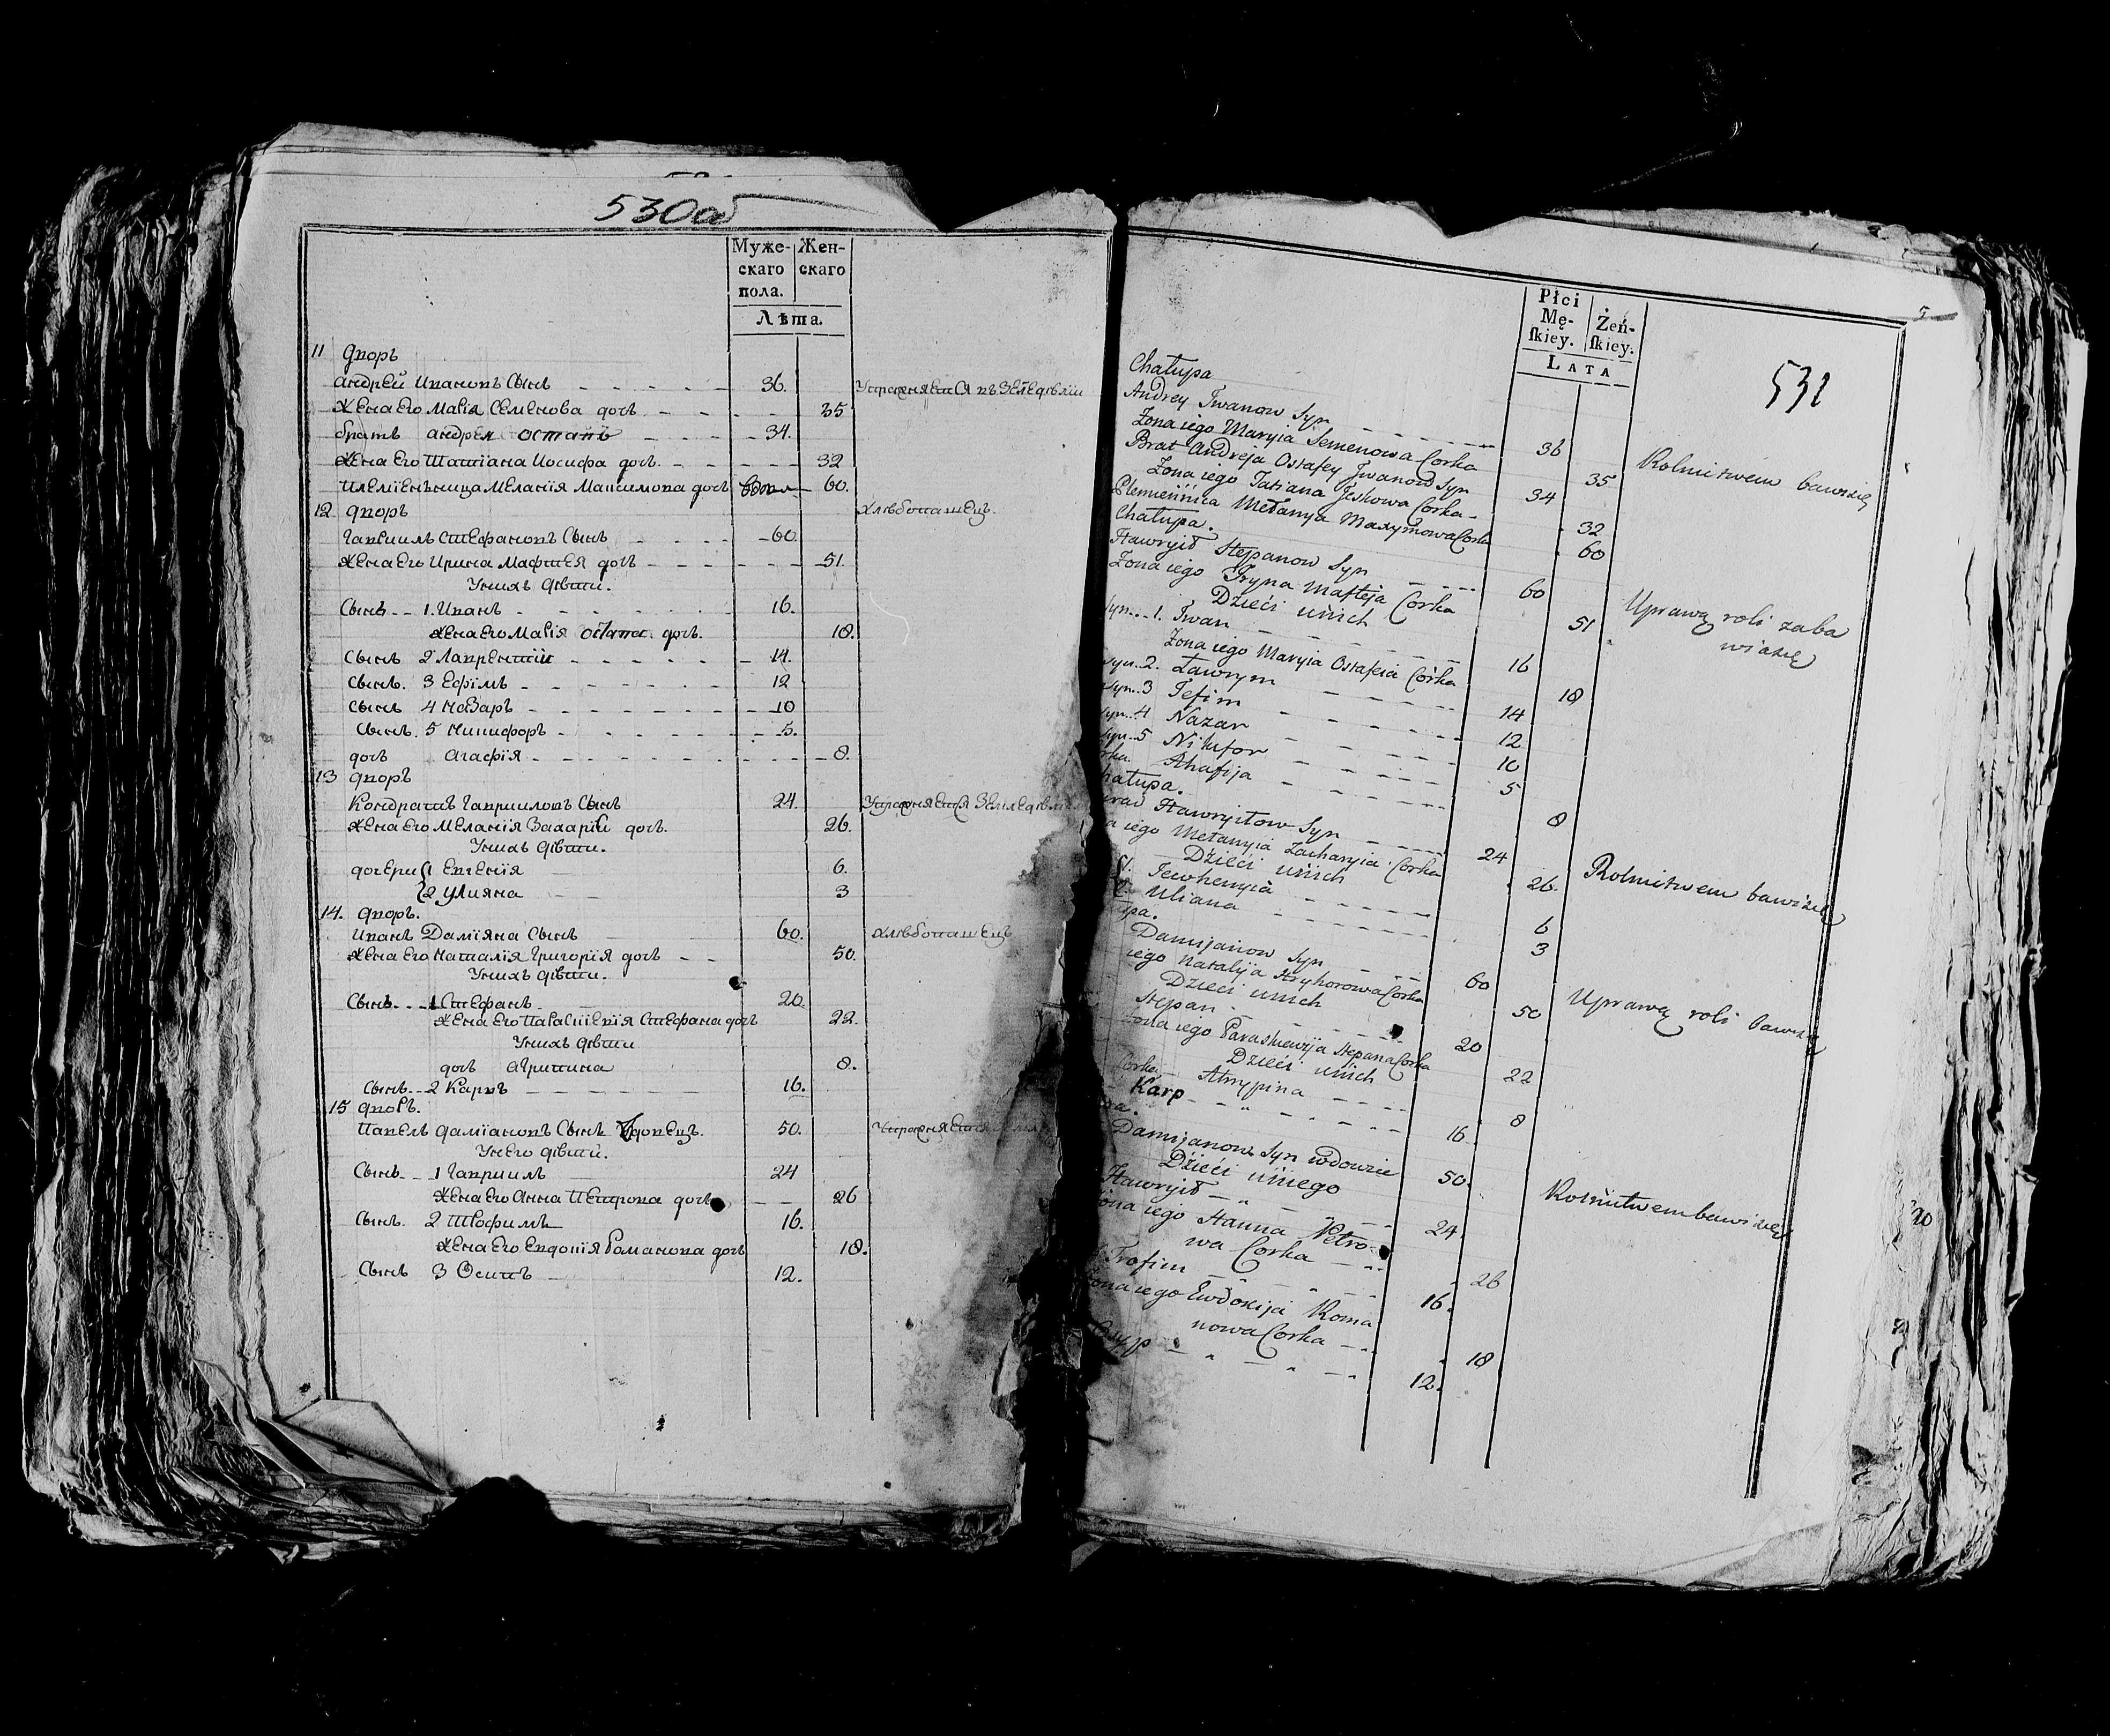 530 об
Муже-
скаго
пола.
Жен-
скаго
Лѣта.
11 дворъ
Андрей Ивановъ Сынъ 36. Упражняется въ Земледѣліи
Жена Его Марія Семенова дочь 35
братъ Андрея Остапъ 34.
Жена Его Татіана Иосифа дочь 32
Племѣнница Меланія Максимова дочь вдова 60.
12 дворъ Хлѣбопашецъ.
Гавріилъ Стефановъ Сынъ 60
Жена Его Ирина Мафтея дочь 51.
У нихъ дѣти.
Сынъ 1. Иванъ 16.
Жена Его Марія Остапа дочь. 18.
Сынъ 2 Лаврентій 14.
Сынъ. 3 Ефімъ 12
Сынъ 4 Назаръ 10
Сынъ. 5 Никифоръ 5.
дочь Агафія 8.
13 дворъ
Кондратъ Гавриловъ Сынъ 24. Упражняется Земледѣліемъ
Жена Его Меланія Захарія дочь. 26.
У нихъ дѣти.
дочери 1 Евгенія 6.
2 Уліяна 3
14. дворъ.
Иванъ Даміяна Сынъ 60. Хлѣбопашецъ
Жена Его Наталія Григорія дочь 50.
У нихъ дѣти.
Сынъ 1 Стефанъ 20.
Жена Его Параскевія Стефана дочь 22.
У нихъ дѣти
дочь Агрипина 8.
Сынъ 2 Карпъ 16.
15 дворъ.
Павелъ Даміановъ Сынъ Вдовецъ. 50. Упражняется
У него дѣти.
Сынъ 1 Гавріилъ 24
Жена Его Анна Петрова дочь 26
Сынъ. 2 Трофимъ 16.
Жена Его Евдокія Романова дочь 18.
Сынъ 3 Осипъ 12.
Płci
Mę-
ſkiey.
Żeń-
ſkiey.
LATA
531
Chałupa
Andrey Iwanow Syn 36 Rolnictwem bawi się
Żona iego Maryia Semenowa Corka 35
Brat Andreja Ostafey Iwanow Syn 34
Żona iego Tatiana Jśkowa Corka 32
Plemiennica Mełanya Maxymowa Corka 60
Chałupa.
Hawryił Stepanow Syn 60 Uprawą roli zaba
wia się
Żona iego Iryna Mafteja Corka 51
Dzieci u nich
Syn 1. Iwan 16
Żona iego Maryia Ostafeia Córka 18
Syn 2. Ławryn 14
Syn 3 Jefim 12
Syn 4 Nazar 10
Syn 5 Nikifor 5
Ahafija 8
Hawryiłow Syn 24 Rolnictwem bawi się
iego Mełanyia Zacharyia Corka 26.
Dzieci u nich
1. Jewhenyia 6
2. Uliana 3
Damijanow Syn 60 Uprawą roli bawi się
iego Natalija Hryhorowa Corka 50
Dzieci u nich
Stepan 20
Żona iego Paraskiewija Stepana Corka 22
Dzieci u nich
Corka Ahrypina 8
Karp 16
Damijanow Syn wdowiec 50. Rolnictwem bawi się
Dzieci u niego
Hawryił 24
Żona iego Hanna Petro-
wa Corka 26
Trofim 16.
Żona iego Ewdokija Roma
nowa Corka 18
Osyp 12.